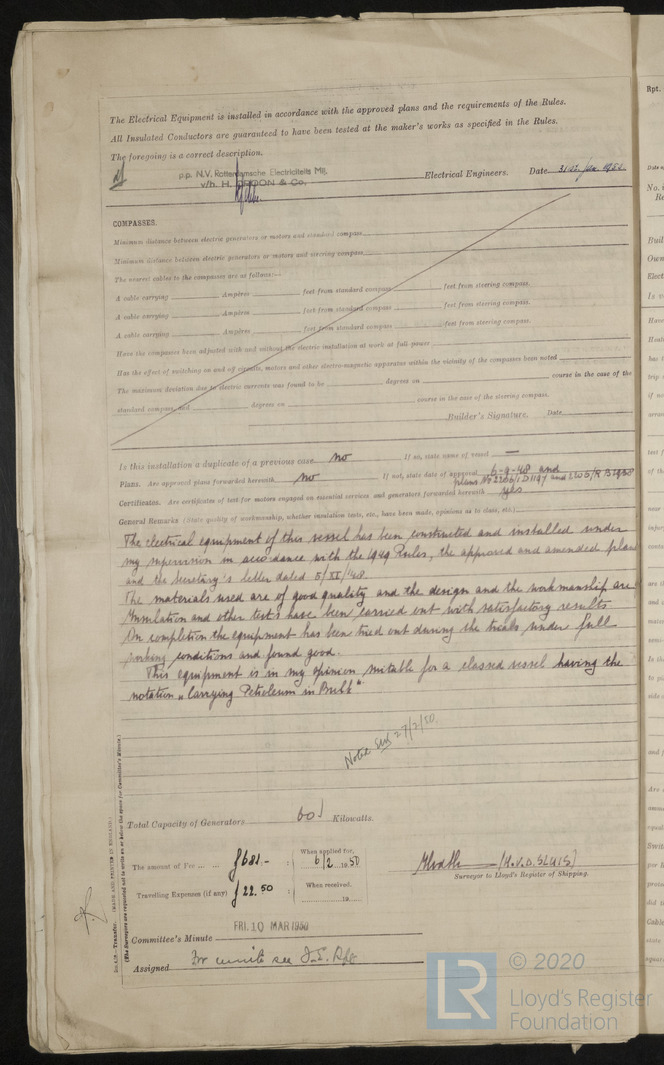 The Electrical Equipment is installed in accordance with the approved plans and the requirements of the Rules.
All Insulated Conductors are guaranteed to have been tested at the maker's works as specified in the Rules.
The foregoing is a correct description.
p.p. N.V. Rotterdamsche Electriciteits Mij.
v/h. H. CROON & Co.
Electrical Engineers. Date
COMPASSES.
Minimum distance between electric generators or motors and standard compass
Minimum distance between electric generators or motors and steering compass
The nearest cables to the compasses are as follows:—
A cable carrying Ampères feet from standard compass feet from steering compass.
A cable carrying Ampères feet from standard compass feet from steering compass.
A cable carrying Ampères feet from standard compass feet from steering compass.
Have the compasses been adjusted with and without the electric installation at work at full power
Has the effect of switching on and off circuits, motors and other electro-magnetic apparatus within the vicinity of the compasses been noted
The maximum deviation due to electric currents was found to be degrees on course in the case of the
standard compass, and degrees on course in the case of the steering compass.
Builder's Signature. Date
Is this installation a duplicate of a previous case no If so, state name of vessel —
Plans. Are approved plans forwarded herewith no If not, state date of approval 6-9-48 and
plans No
Certificates. Are certificates of test for motors engaged on essential services and generators forwarded herewith yes
General Remarks (State quality of workmanship, whether insulation tests, etc., have been made, opinions as to class, etc.)
The electrical equipment of this vessel has been constructed and installed under
my supervision in accordance with the 1949 Rules, the approved and amended plans
and the Secretary's letter dated 5/XI/'48.
The materials used are of good quality and the design and the workmanship are
Insulation and other tests have been carried out with satisfactory results
On completion the equipment has been tried out during the trials under full
working conditions and found good.
This equipment is in my opinion suitable for a classed vessel having the
notation „Carrying Petroleum in Bulk".
Noted 27/2/50.
Total Capacity of Generators 60 Kilowatts.
The amount of Fee ... ... ƒ681.- : When applied for, 6/2 1950
Travelling Expenses (if any) ƒ 22.50 : When received, 19
(H.V.D. SLUIS)
Surveyor to Lloyd's Register of Shipping.
FRI. 10 MAR 1950
Committee's Minute
Assigned see
Transfer. (MADE AND PRINTED IN ENGLAND.)
(The Surveyors are requested not to write on or below the space for Committee's Minute.)
Rpt.
LR
© 2020
Lloyd's Register
Foundation